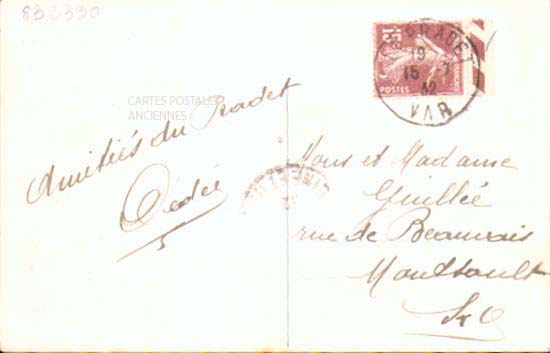 832330
15c
POSTES
LE PRADET
19
15-7
32
VAR
CARTES POSTALES
ANCIENNES
Amitiés du Pradet
Dédée
Mons et Madame
Guillée
rue de Beauvais
Montsoult
S&O